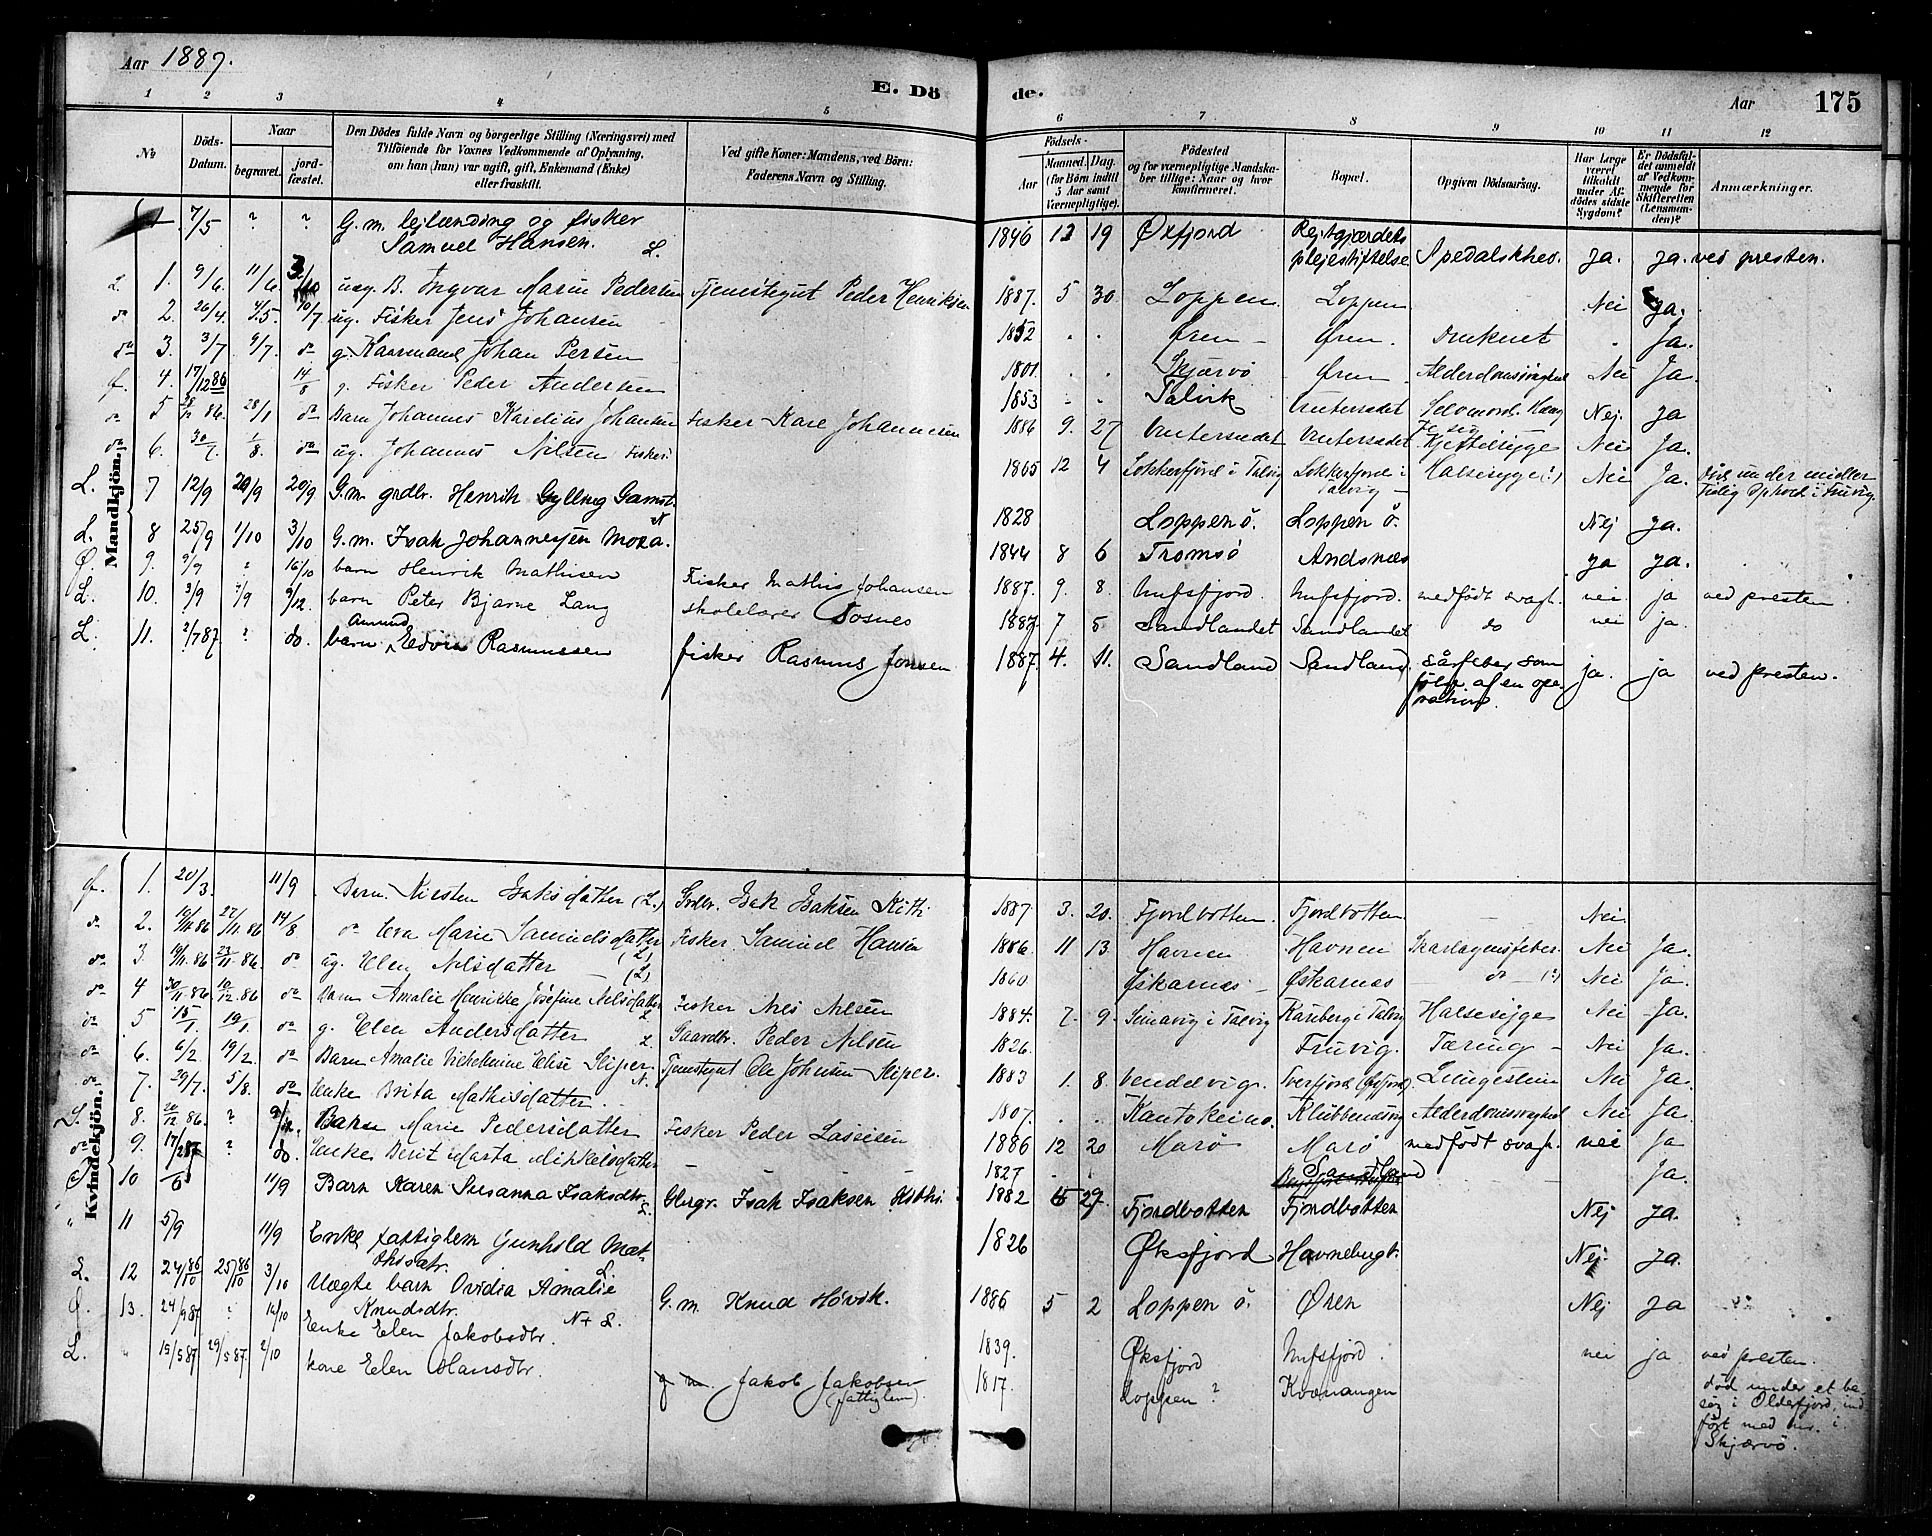 Aar 1887.
E. Döde.
Aar
175
1 2 3 4 5 6 7 8 9 10 11 12
No
Döds-Datum.
Naar
begravet.
jord-fæstet.
Den Dödes fulde Navn og borgerlige Stilling (Næringsvei) med
Tilföiende for Voxnes Vedkommende af Oplysning,
om han (hun) var ugift, gift, Enkemand (Enke)
eller fraskilt.
Ved gifte Koner: Mandens, ved Börn:
Faderens Navn og Stilling.
Födsels-
Aar
Maaned. Dag.
(for Börn indtil
5 Aar samt
Værnepligtige).
Födested
og for værnepligtige Mandska-
ber tillige: Naar og hvor
konfirmeret.
Bopæl.
Opgiven Dödsaarsag.
Har Læge
været
tilkaldt
under Af-
dödes sidste
Sygdom?
Er Dödsfal-
det anmeldt
af Vedkom-
mende for
Skifteretten
(Lensman-
den)?
Anmærkninger.
Mandkjön.
7/5 " " G. m. lejlænding og fisker Samuel Hansen. L. 1846 12 19 Øxfjord Rejtgjærdets plejestiftelse Spedalskhed. ja. ja. ved presten.
L. 1. 9/6. 11/6 3/10 uæg. B. Ingvar Marin Pedersen Tjenestegut Peder Henriksen 1887. 5 30. Loppen. Loppen Nei Ja.
do 2. 26/4. 4/5. 10/7 ug. Fisker Jens Johansen 1852 . . Øren Øren. druknet . Ja.
do 3. 3/7 9/7. do g. Kaarmand Johan Persen 1801 . . Skjærvø Øren. Alderdomssvaghed Nei Ja.
Ø. 4. 17/12 86 14/8 g. Fisker Peder Andersen 1853 . . Talvik Vintersædet Selvmord. Hæng te sig Nej. Ja
do 5 86. 28/1 do Barn Johannes Karelius Johansen Fisker Kare Johannesen 1886 9. 27 Vintersædet Vintersædet Kjertelsyge Nei Ja.
do 6. 30/7. 1/8. do ug. Johannes Nilsen Fisker. 1865 12 4 Lokkerfjord i Talvig Lokkerfjord i Talvig Halsesyge (?) Nei Ja. Död under midler tidig Ophold i Fruvig.
L. 7 12/9 20/9 20/9 G. m. grdbr. Henrik Gyllneg Gamst. N 1828 Loppen ö. Loppen ö. Nej ja.
L. 8 25/9 1/10 3/10 G. m. Isak Johannesen Mora. 1844 8 6 Tromsö Andsnæs ja ja.
Ø. 9. 9/9 " 16/10 barn Henrik Mathisen Fisker Mathis Johansen 1887. 9. 8. Nufsfjord. Nufsfjord. medfödt svagh. nei ja ved presten.
L. 10. 3/9 7/9 9/12. barn Peter Bjarne Lang skolelærer Sosnes 1887 7 5 Sandlandet Sandlandet do nei ja.
L. 11. 2/7 87. " do. barn Amund Edvin Rasmussen fisker Rasmus Jonsen 1887. 4. 11. Sandland Sandland. sårfeber som følge af en operation. ja. ja ved presten.
Kvindekjön.
Ø. 1. 20/3. 11/9 Barn. Nirsten Isaksdatter (L.) Grdbr. Isak Isaksen Kith. 1887. 3. 20. Fjordbotten. Fjordbotten. Nei
do 2. 19/11 86 27/11 86 14/8 do Eva Marie Samuelsdatter (L) Fisker. Samuel Hansen 1886 11 13. Havnen Havnen Skarlagensfeber. Nei Ja.
do 3. 19/11. 86 23/11. 86. do ug. Elen Nilsdatter (L) 1860 Øskarnes Øskarnes do (?) Nei Ja.
do 4 30/11 86. 10/12. 86 do Barn Amalie Henrikke Josefine Nilsdatter L Fisker Nils Nilsen 1884. 7. 9. Simavig i Talvig Karlberg i Talvig Halsesyge Nei Ja.
do 5 15/1. 19/1. do g. Elen Andersdatter L Gaardbr. Peder Nilsen 1826. Fruvig. Tæring Nei Ja.
do 6. 6/2. 19/2. do Barn Amalie Vilhelmine Else Sliper. N. Tjenestegut Ole Johnsen Sliper. 1883 1. 8. Vendevig. Sverfjord (Øxfjord) Lungestein Nei Ja.
do 7. 29/7. 5/8. do Enke Brita Mathisdatter. 1807. . . Kautokeino. Klubbenäsv Alderdomssvaghed Nei Ja.
L. 8. 20/12 86. ? Barn Marie Pedersdatter Fisker Peder Lassisen 1886 12 20 Marø Marø medfödt svagh. nei Ja
do 9. 17/2 87 ? do. Enke Berit Marta Mikkelsdatter 1827 Sandland Ja.
10 11/9 Barn Karen Susanna Isaksdtr. L. Isak Isaksen 1882 29. Fjordbotten Fjordbotten Nej ja.
" 11 5/9 11/9 Enke fattiglem Gunhild Mathisdtr. L. 1826 Øksfjord Havnebugt. Nej. ja.
L. 12 24/10 86 25/10 86 3/10 Uægte barn Ovidia Amalie Knudsdtr. N + L. G. m. Knud Hövik. 1886 5 2 Loppen ö. Øren Nej ja
Ø. 13. 24/9 87 " 16/10 Enke Elen Jakobsdtr. 1839. Øksfjord Nufsfjord. nei ja ved presten.
L. " 19/5 87 29/5 87. 2/10 kone Elen Hansdtr. g. m. Jakob Jakobsen (fattiglem) 1817. Loppen ? Kvænangen död under et besög i Oldefjord, indfört med nr. i Skjærvö.